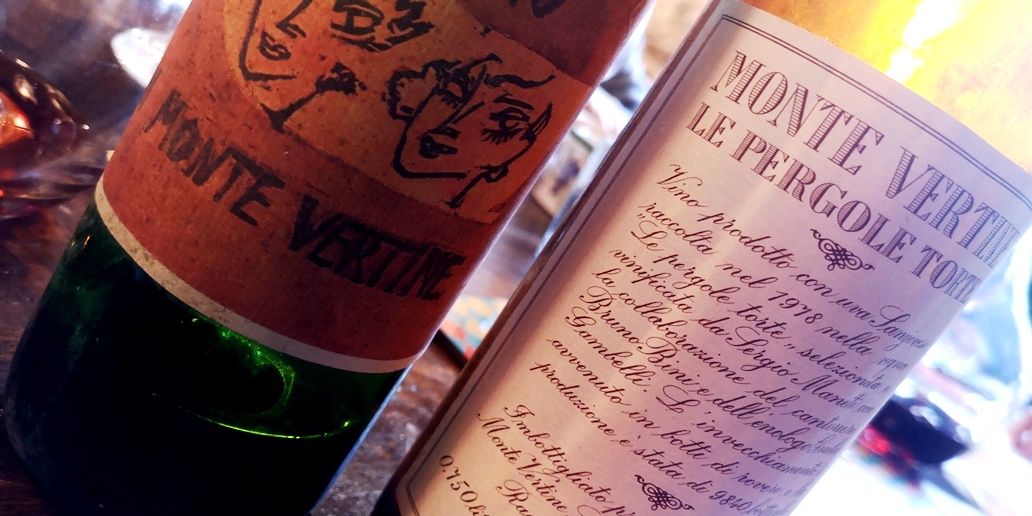 MONTE VERTINE
MONTE VERTIN
LE PERGOLE TORTE
Vino prodotto con uva Sangiove
raccolta nel 1978 nella vigna
"Le pergole torte", selezionata
vinificata da Sergio Manetti con
la collaborazione del cantiniere
Bruno Bini e dell'enologo Giulio
Gambelli. L'invecchiamento
avvenuto in botti di rovere
produzione è stata di 9840 bott
Imbottigliato
Monte Vertine
Ra
0,750